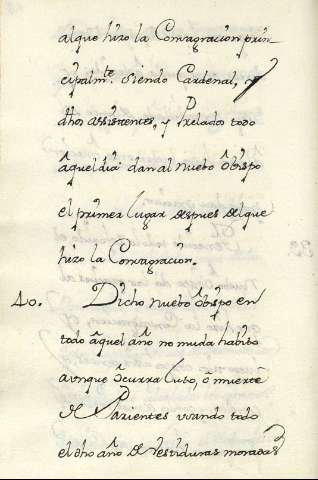 alque hizo la Consagracion prin-
cipalmte. siendo Cardenal, y
dhos assistentes, y Prelados todo
aquel dia dan al nuebo Obispo
el primer lugar despues del que
hizo la Consagracion.
40. Dicho nuebo Obispo en
todo aquel año no muda habito
aunque ocurra luto, o muerte
de Parientes usando todo
el dho año de vestiduras moradas